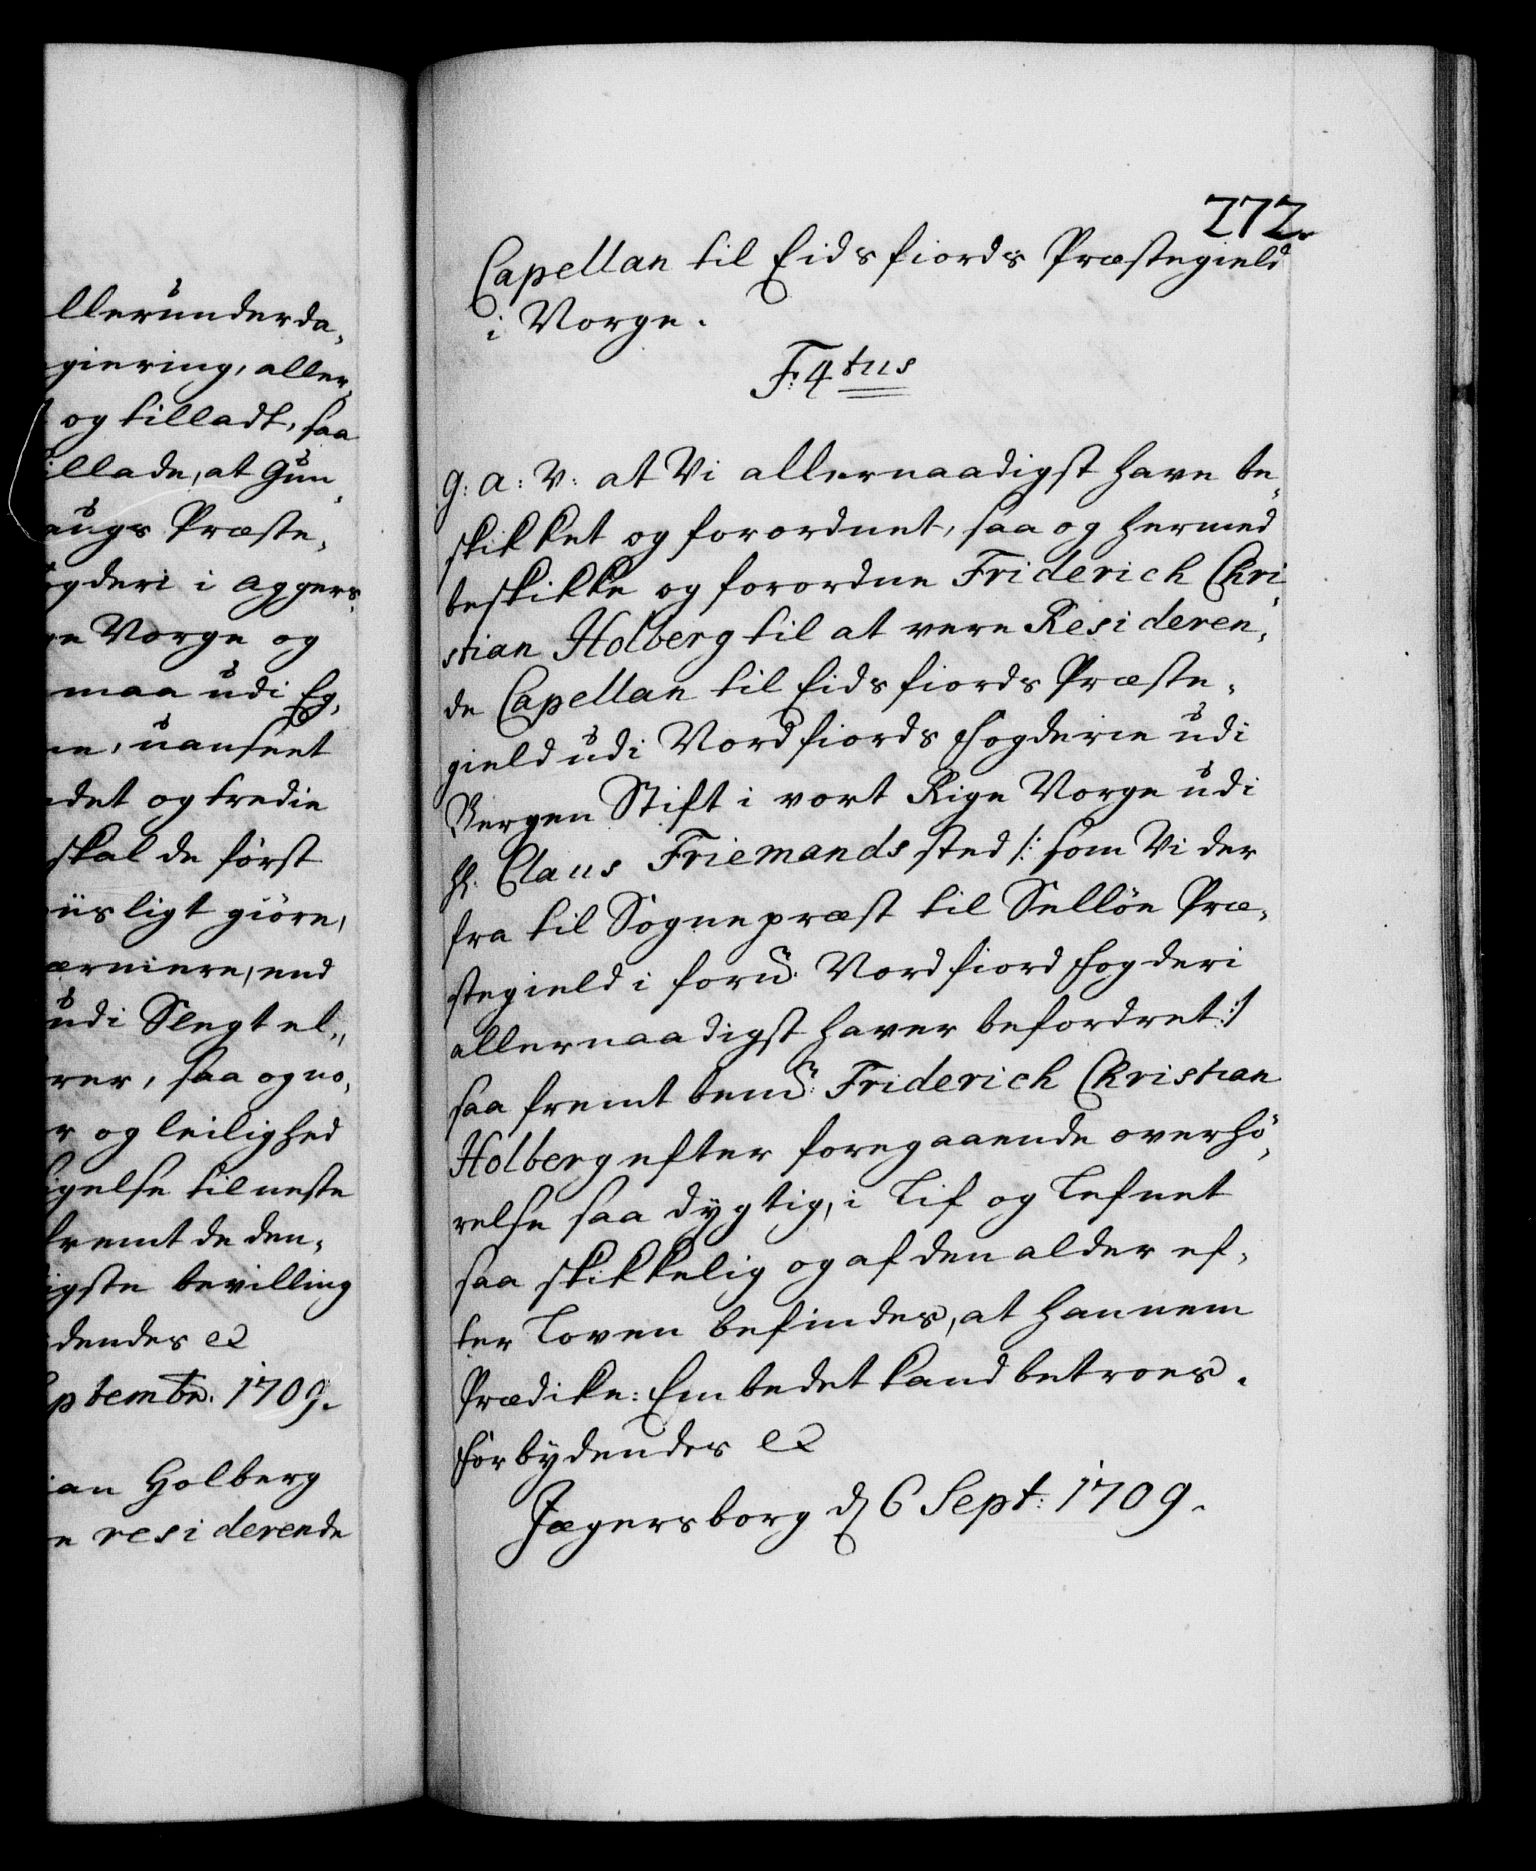 llerunderda,
giering, aller,
og tilladt, saa
illade, at Gun,
augs Præste,
ogderi i Aggers,
ge Norge og
maa udi Eg,
ne, uanseet
det og tredie
skal de først
iisligt giøre,
ærmere, end
udi Slegt el,
rer, saa og no,
r og leilighed
igelse til neste
fremt de den,
igste bevilling
dendes etc
ptembr. 1709.
ian Holberg
e residerende
272.
Capellan til Eidsfiords Præstegield
i Norge.
F. 4tus
G: A: V: at Vi allernaadigst have be,
skikket og forordnet, saa og hermed
beskikke og forordne Friderich Chri,
stian Holberg til at vere Resideren,
de Capellan til Eidsfiords Præste,
gield udi Nordfiords Fogderie udi
Bergen Stift i vort Rige Norge udi
Hr. Claus Friemands sted /: som Vi der
fra til Sognepræst til Selløe Præ,
stegield i forn: Nordfiord Fogderi
allernaadigst haver befordret :/
saa fremt bem: Friderich Christian
Holberg efter foregaaende overhö,
relse saa dygtig, i Lif og Lefnet
saa skikkelig og af den alder ef,
ter Loven befindes, at hannem
Prædike: Embedet kand betroes.
Forbydendes etc
Jægersborg d 6 Sept: 1709.